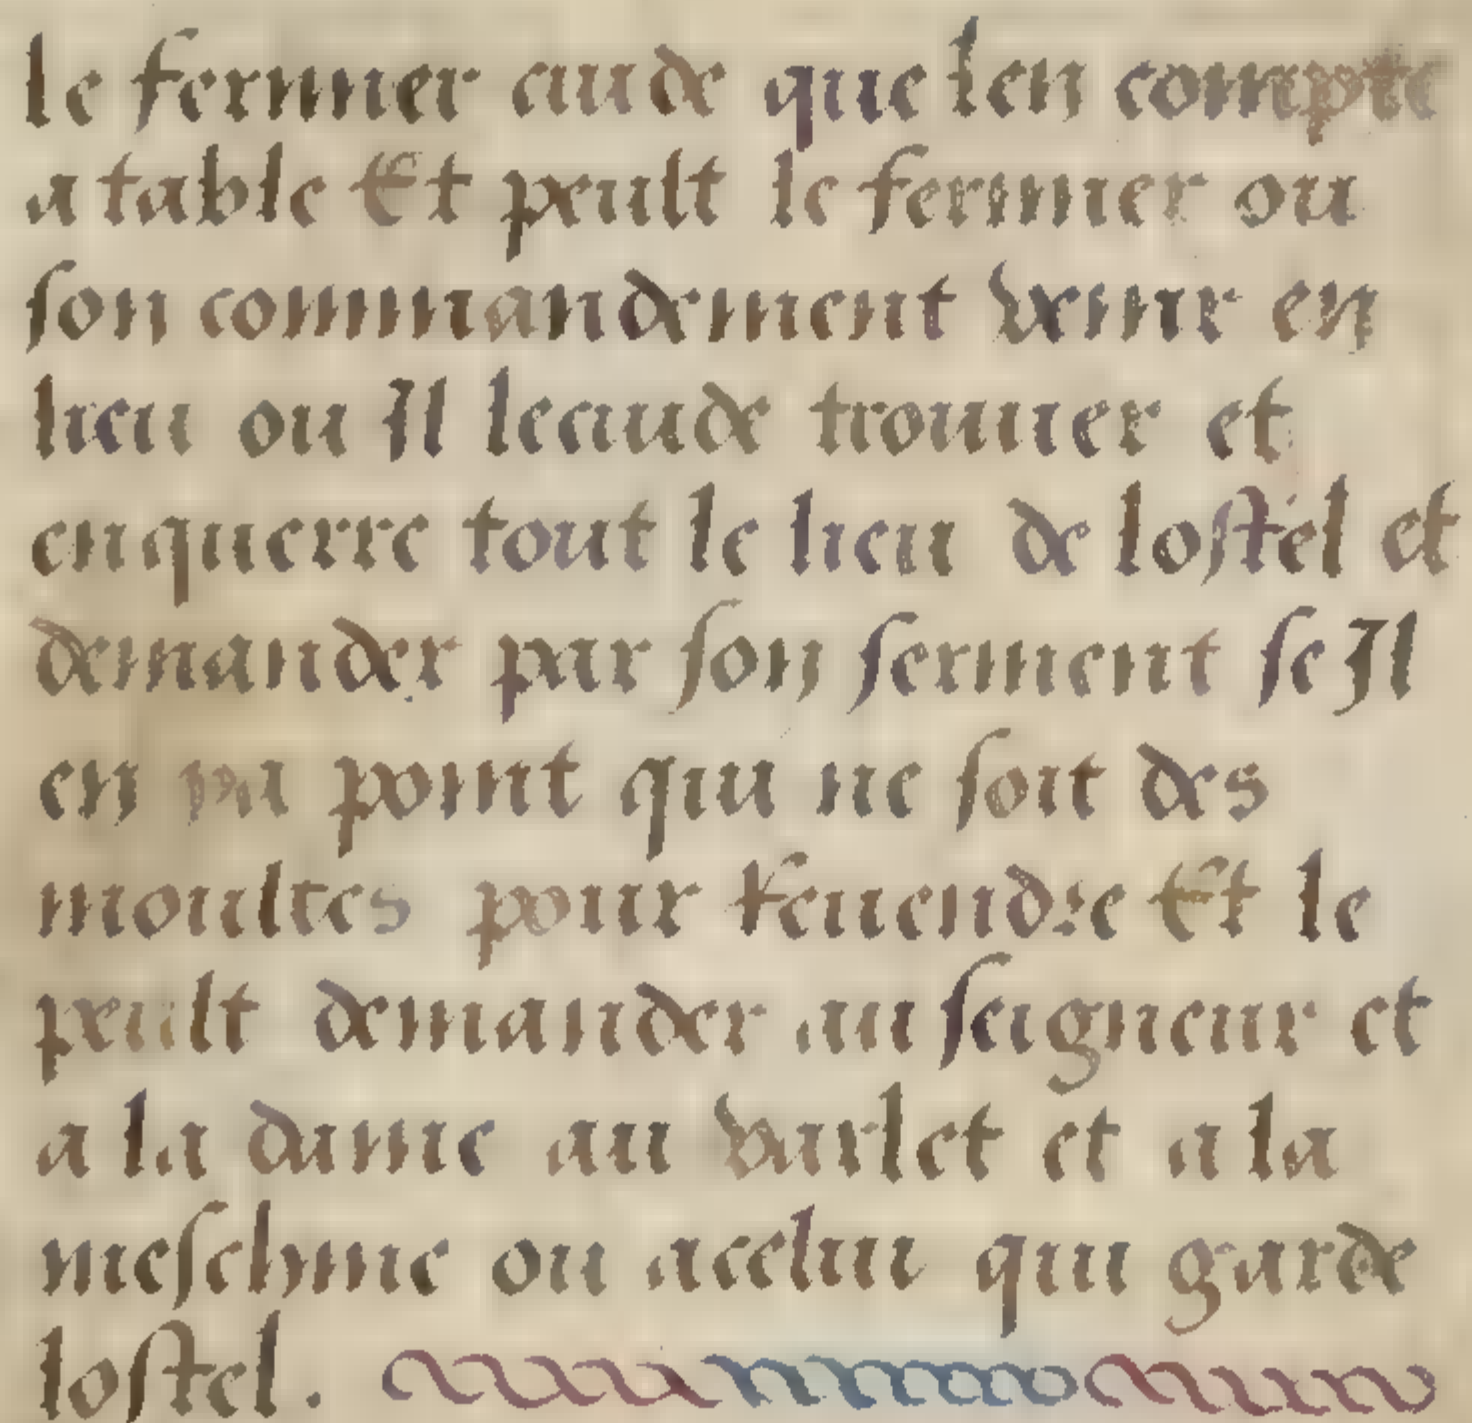 le fermier cuide que len compte
a table Et peult le fermier ou
son commandement venir en
lieu ou Il lecuide trouuer et
enquerre tout le lieu de lostel et
demander par son serment se Il
en ya point qui ne soit des
moultes pour Reuendre Et le
peult demander au seigneur et
a la dame au varlet et a la
meschine ou acelui qui garde
lostel.